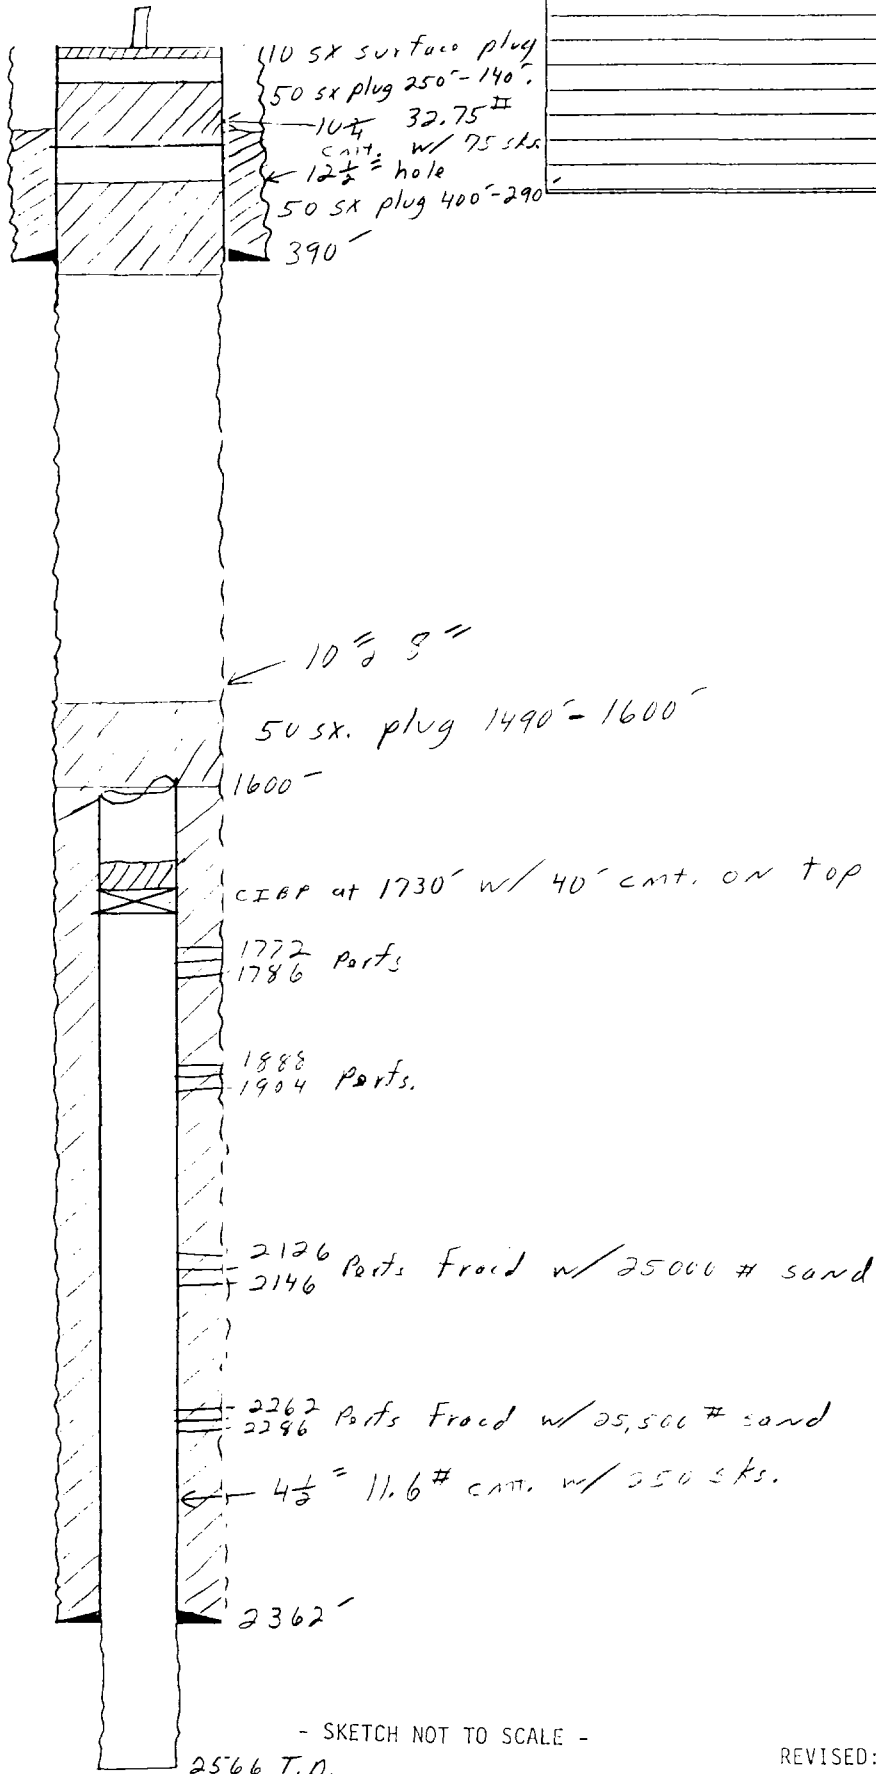 10 sx surface plug
50 sx plug 250'-140'.
10 3/4 32.75#
cmt. w/ 75 sks.
12 1/2" hole
50 sx plug 400'-290'
390'
8"
50 sx. plug 1490'-1600'
1600'
CIBP at 1730' w/ 40' cmt. on top
1772
1786 Perfs
1888
1904 Perfs.
2126
2146 Perfs Fracd w/ 25000 # sand
2262
2286 Perfs Fracd w/ 25,500 # sand
4 1/2" 11.6# cmt. w/ sks.
2362'
- SKETCH NOT TO SCALE -
2566 T.D.
REVISED: